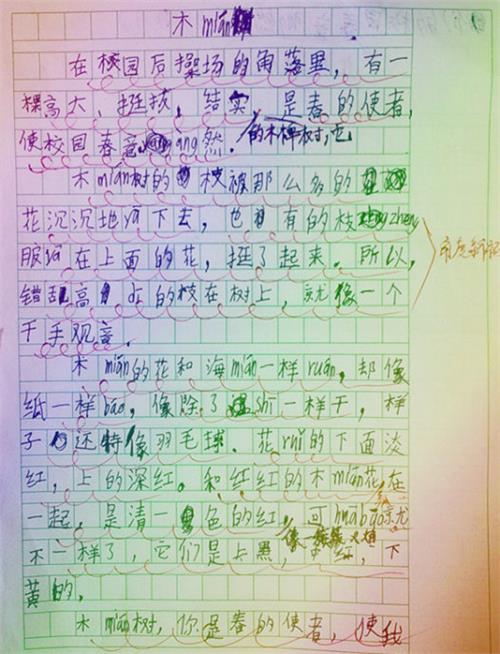 木mián
在校园后操场的角落里，有一
棵高大、挺拔、结实，是春的使者，
使校园春意àng然．的木棉树，它
木mián树的枝被那么多的
花沉沉地yā下去，也有的枝zhēng
服yā在上面的花，挺了起来．所以，
错乱高的枝在树上，就像一个
千手观音．
木mián的花和海mián一样ruǎn，却像
纸一样báo，像除了shī一样干，样
子还特像羽毛球．花ruǐ的下面淡
红，上的深红。和红红的木mián花在
一起，是清一色的红，可huābāo就
不一样了，它们是上黑，中红，下
像一簇簇火焰
黄的．
木mián树，你是春的使者，使我